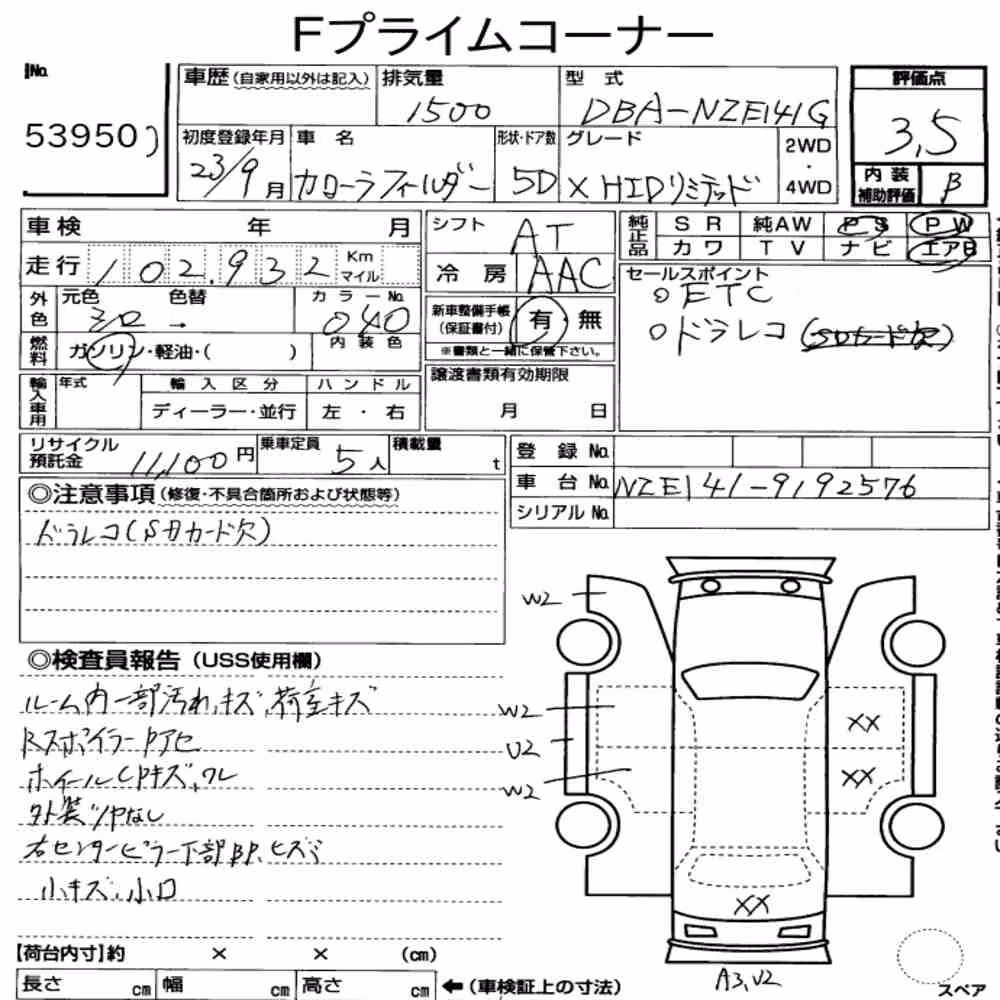 Fプライムコーナー
No. 53950
車歴(自家用以外は記入) 排気量 1500 型式 DBA-NZE141G 評価点 3,5
初度登録年月 23/9月 車名 カローラフィールダー 形状・ドア数 5D グレード X HIDリミテッド 2WD・4WD 内装補助評価 B
車検 年 月 シフト AT 純正品 SR 純AW PS PW
走行 102,932 Km マイル 冷房 AAC カワ TV ナビ エアB
外色 元色 シロ 色替 → カラーNo. 040 内装色
新車整備手帳(保証書付) 有・無
※書類と一緒に保管下さい。
セールスポイント
○ETC
○ドラレコ(SDカード欠)
燃料 ガソリン・軽油・( )
輸入車用 年式 輸入区分 ディーラー・並行 ハンドル 左・右
譲渡書類有効期限 月 日
リサイクル預託金 11,100円 乗車定員 5人 積載量 t
登録No.
車台No. NZE141-9192576
シリアルNo.
◎注意事項(修復・不具合箇所および状態等)
ドラレコ(SDカード欠)
◎検査員報告(USS使用欄)
ルーム内一部汚れ、キズ、荷室キズ
Rスポイラー Pアセ
ホイールCPキズ、ワレ
外装ツヤなし
右センターピラー下部BP、ヒズミ
小キズ、小凹
W2
W2
U2
W2
XX
XX
XX
A3,U2
スペア
【荷台内寸】約 × × (cm)
長さ cm 幅 cm 高さ cm ←(車検証上の寸法)